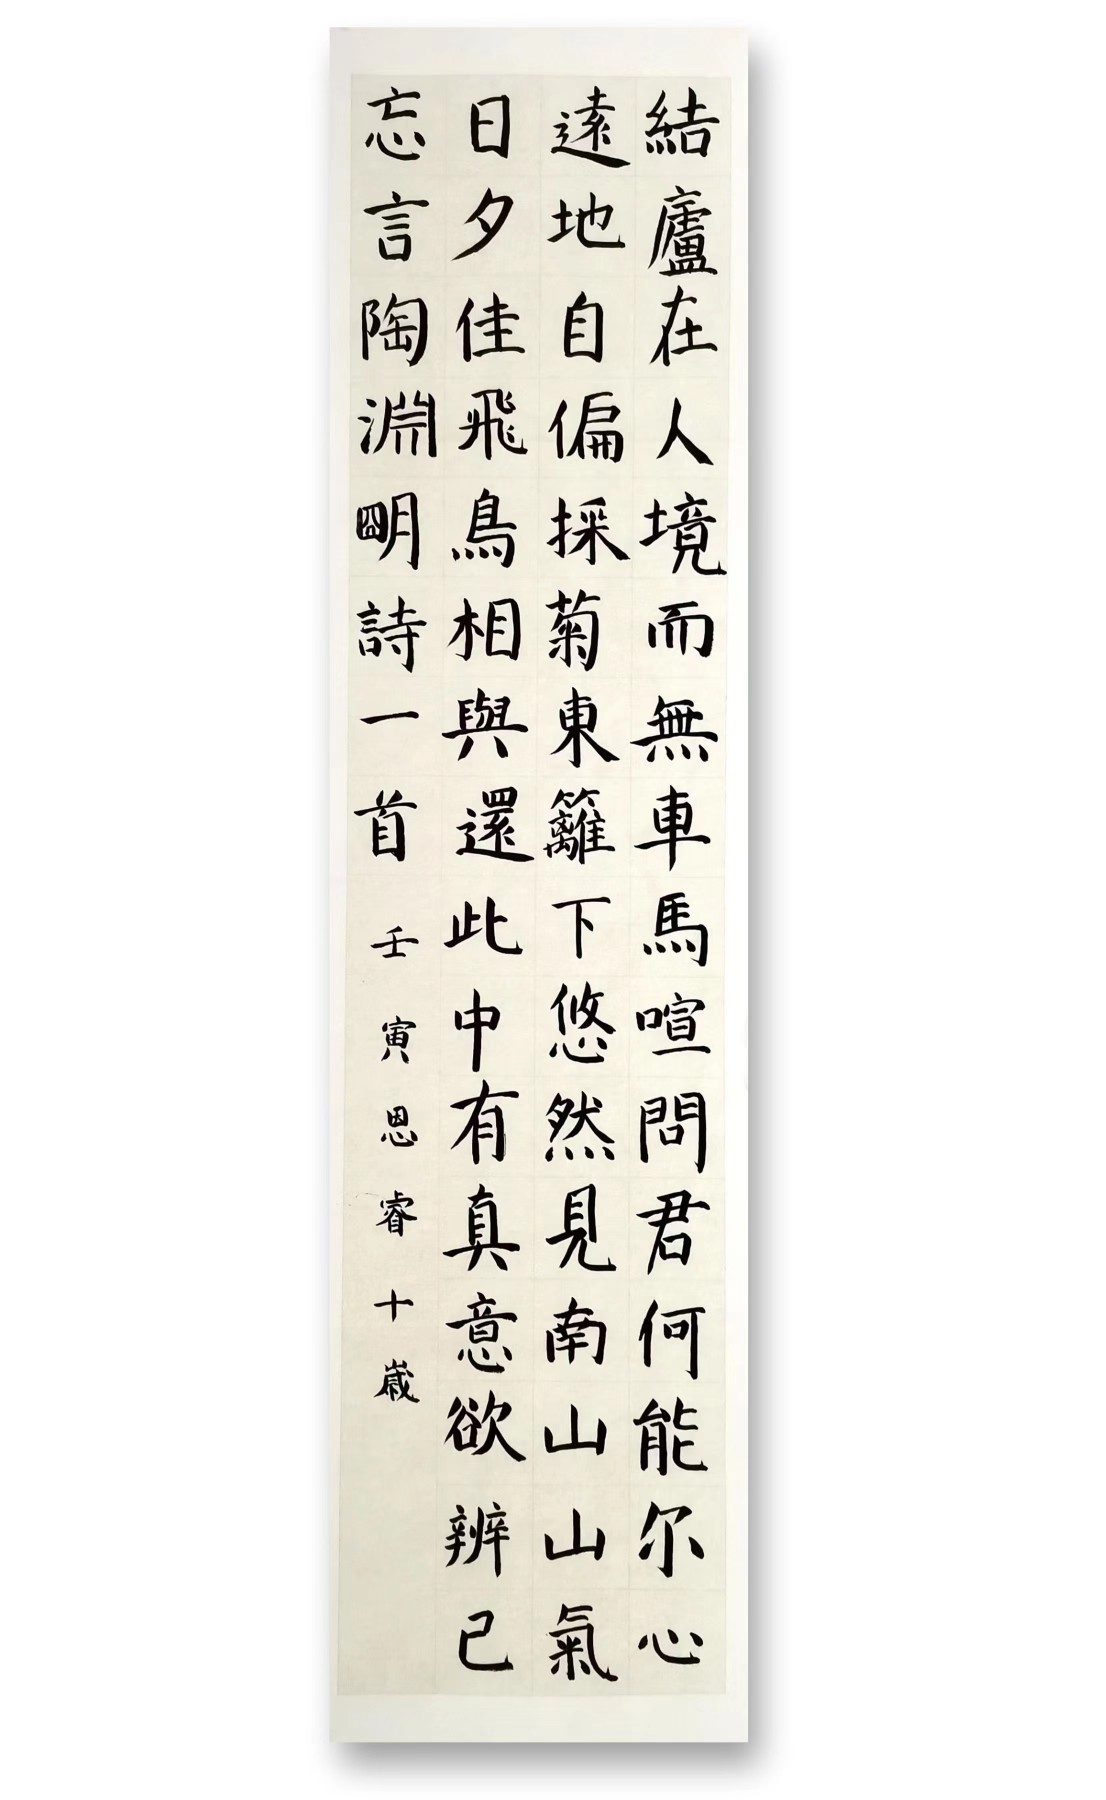 結廬在人境而無車馬喧問君何能尔心
遠地自偏採菊東籬下悠然見南山山氣
日夕佳飛鳥相與還此中有真意欲辨已
忘言陶淵明詩一首壬寅恩睿十歲